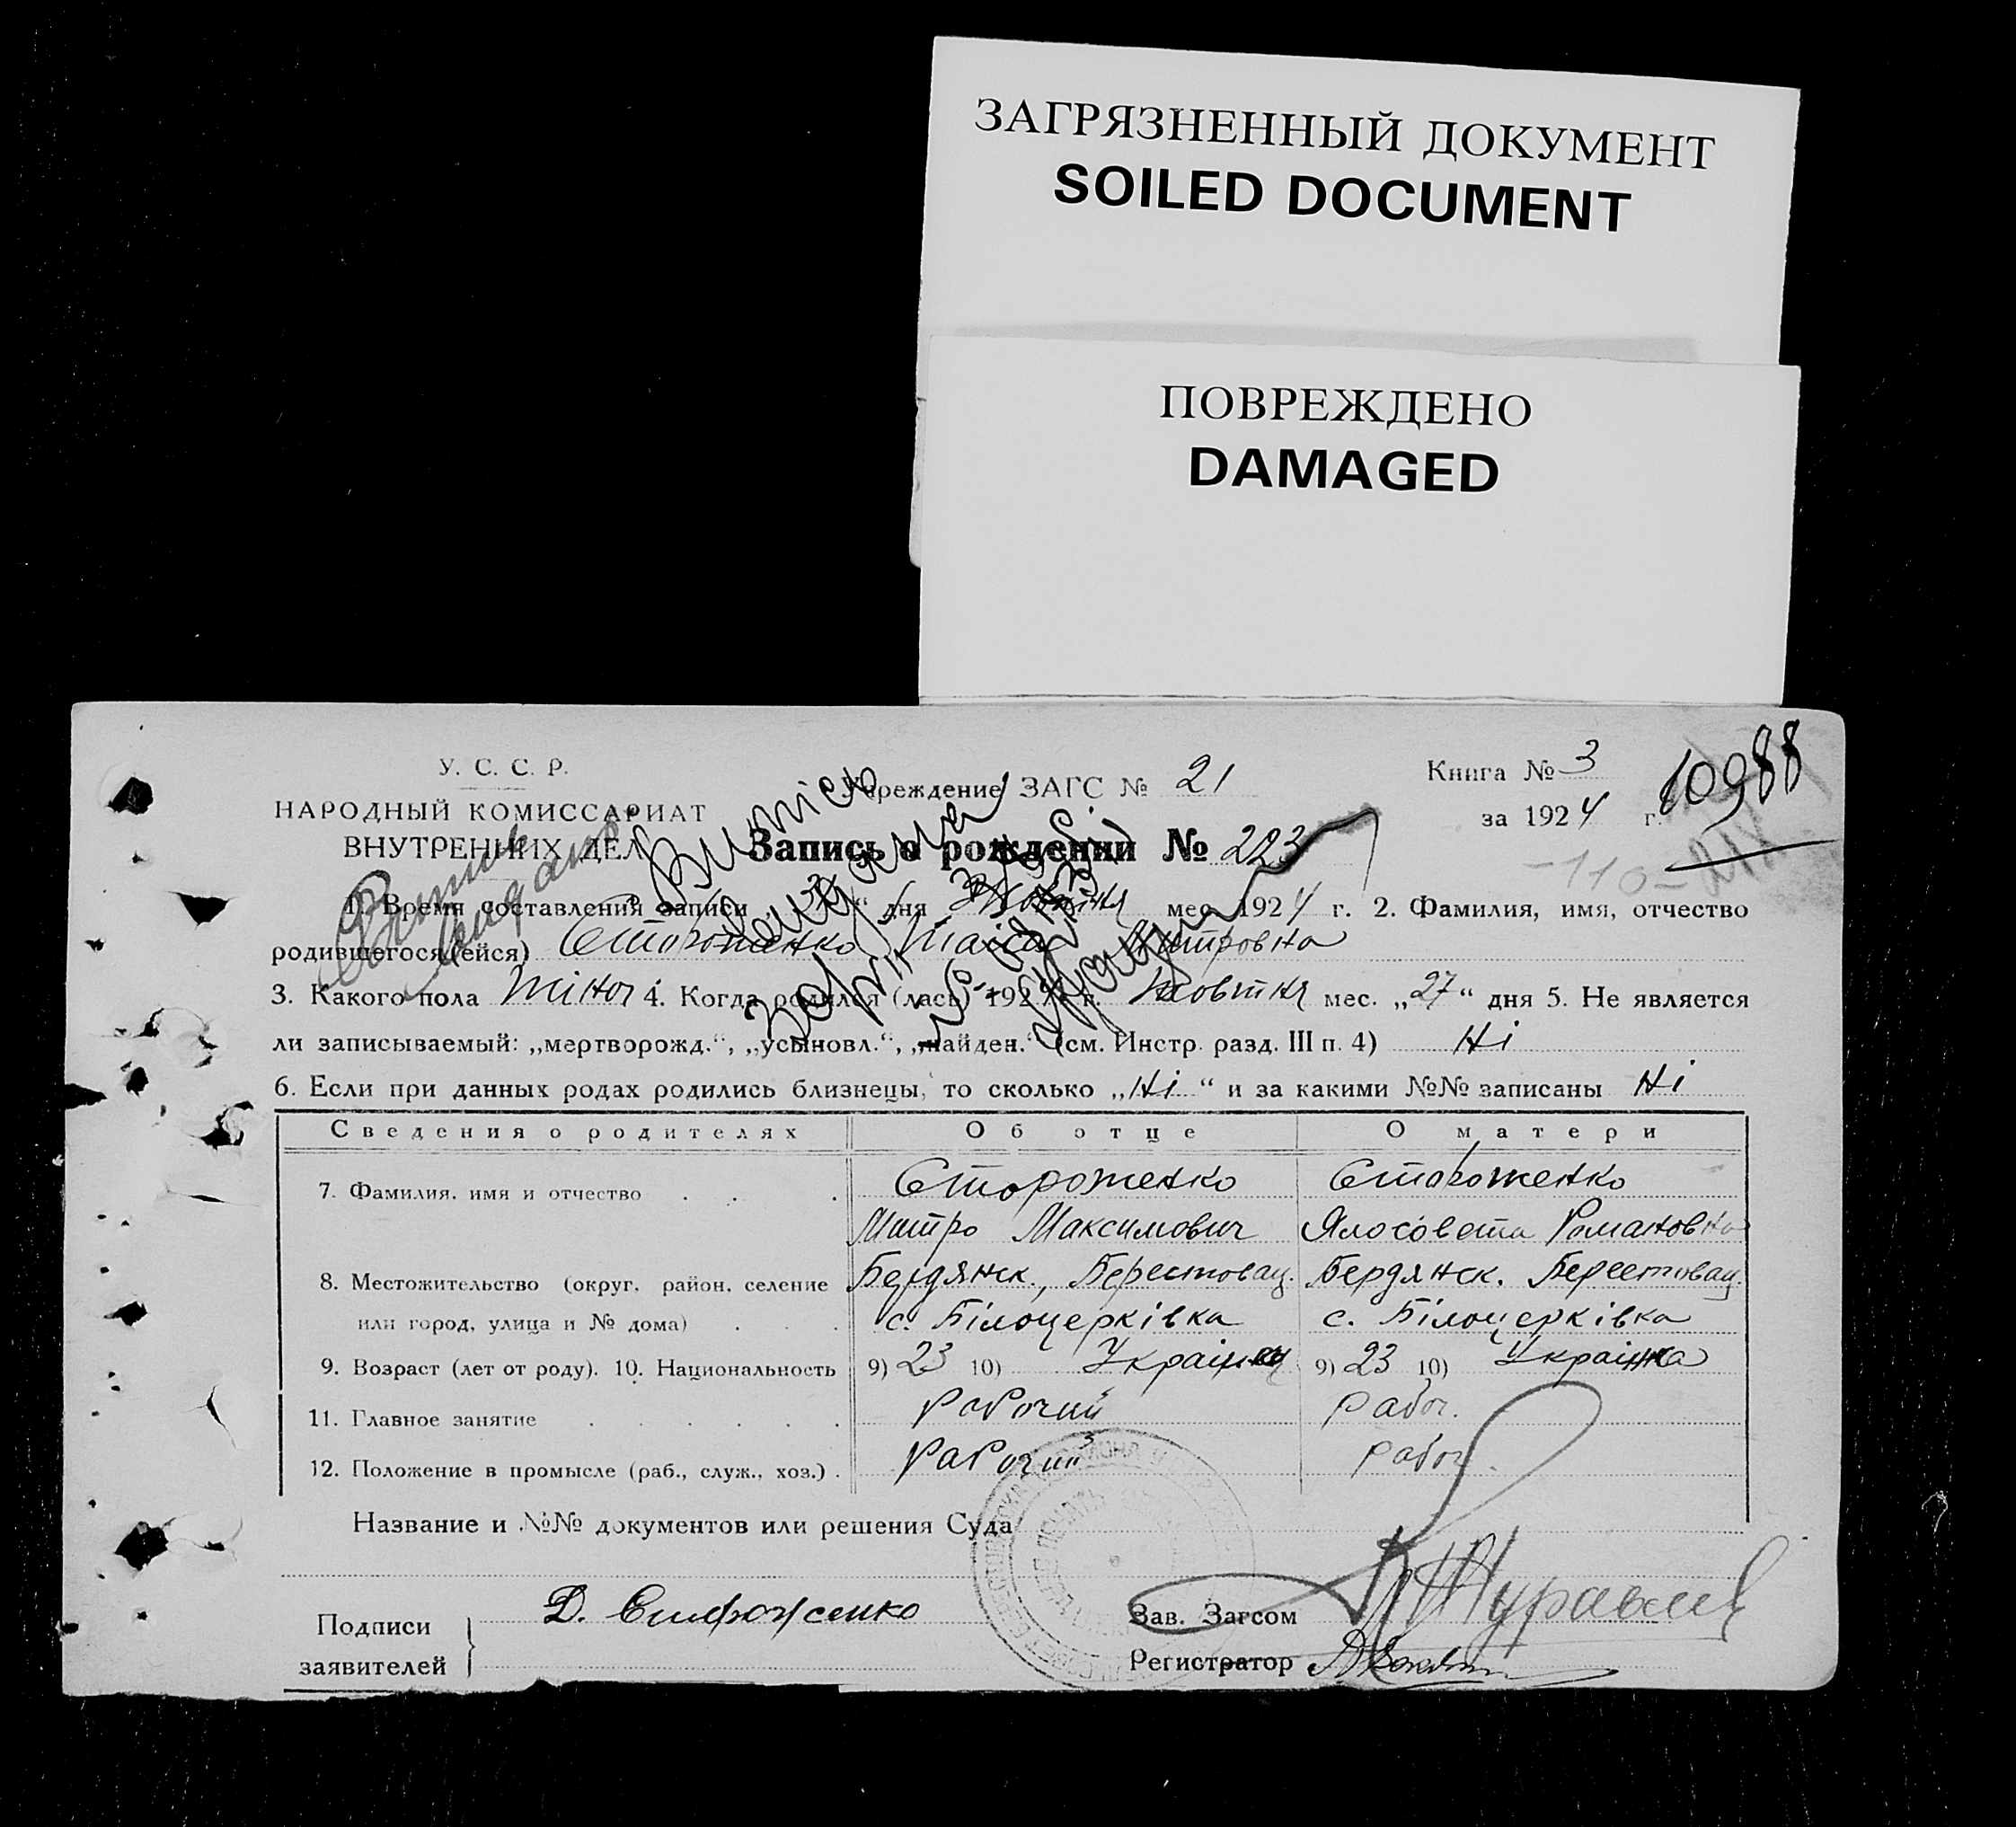 ЗАГРЯЗНЕННЫЙ ДОКУМЕНТ
SOILED DOCUMENT
ПОВРЕЖДЕНО
DAMAGED
У. С. С. Р.
НАРОДНЫЙ КОМИССАРИАТ
ВНУТРЕННИХ ДЕЛ
Учреждение ЗАГС № 21
Книга № 3
за 1924 г.
10988
Запись о рождении № 223
1. Время составления записи „ “ дня мес. 1924 г. 2. Фамилия, имя, отчество
родившегося(ейся) Стороженко Таіса Митровна
3. Какого пола жіноч 4. Когда родился (лась) 1924 г. жовтня мес. „27“ дня 5. Не является
ли записываемый: „мертворожд.“, „усыновл.“, „найден.“ (см. Инстр. разд. III п. 4) Ні
6. Если при данных родах родились близнецы, то сколько „Ні“ и за какими №№ записаны Ні
Сведения о родителях Об отце О матери
7. Фамилия, имя и отчество Стороженко Стороженко
Митро Максимович Ялосовета Романовна
8. Местожительство (округ, район, селение Бердянск., Берестовац. Бердянск. Берестовац.
или город, улица и № дома) с. Білоцерківка с. Білоцерківка
9. Возраст (лет от роду). 10. Национальность 9) 23 10) Українец 9) 23 10) Українка
11. Главное занятие рабочий рабоч.
12. Положение в промысле (раб., служ., хоз.) рабочий рабоч.
Название и №№ документов или решения Суда
Подписи заявителей Д. Стороженко
Зав. Загсом Журавлев
Регистратор